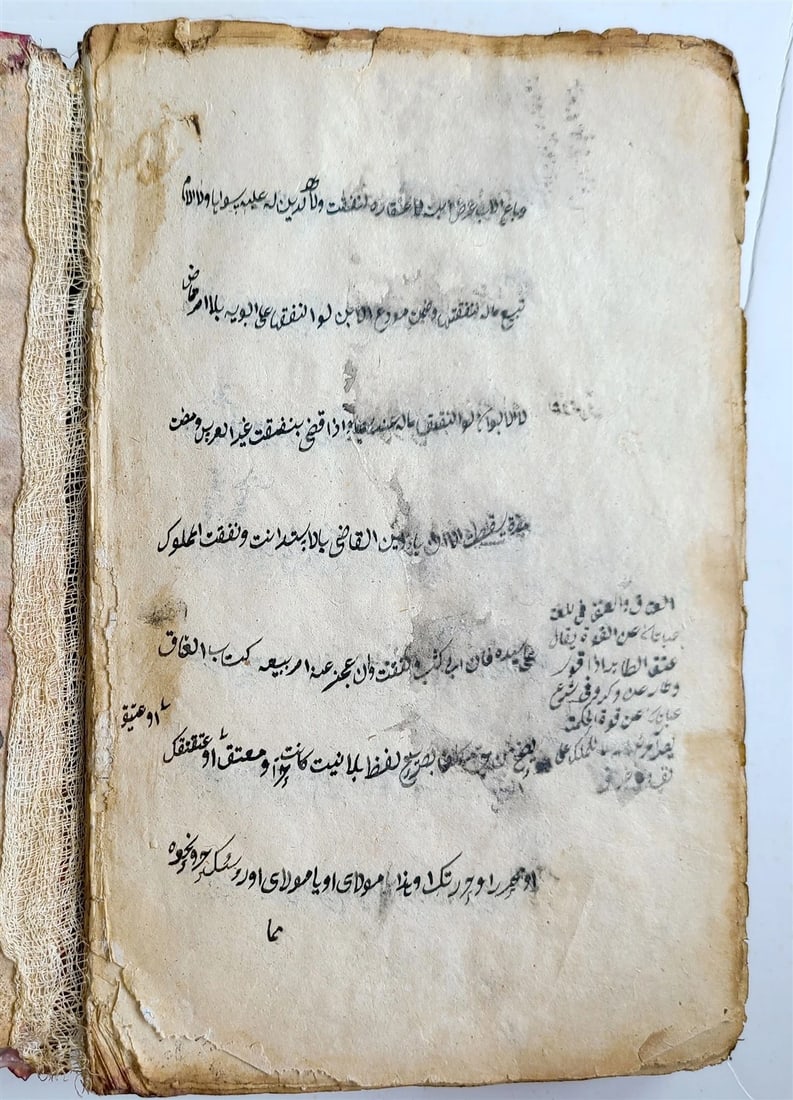 وباع الاب عرض ابنه لا عقاره لنفقته ولا لدين له عليه سواها ولا الام
تبيع ماله لنفقتها وضمن مودع الابن لو انفقها على ابويه بلا امر قاض
لا الابوان لو انفقا ماله عندهما واذا قضى بنفقت غير العرس ومضت
مدة سقطت الا ان ياذن القاضي بالاستدانت ونفقت المملوك
على سيده فان ابى كسب وانفقت وان عجز عنه امر ببيعه كتاب العتاق
يصح من حر مكلف بصريح لفظ بلا نيت كانت حر او معتق او عتقتك
او عتيق
او محرر او حررتك او هذا مولاى او يا مولاى او راسك حر ونحوه
مما
العتاق والعتق فى اللغة
عبارة عن القوة يقال
عتق الطاير اذا قوى
وطار عن وكره وفى الشرع
عبارة عن قوة الحكمية